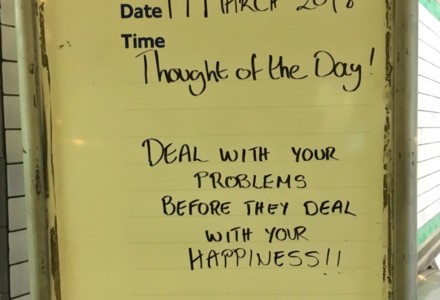 Date 11 MARCH 2018
Time
Thought of the Day!
DEAL WITH YOUR
PROBLEMS
BEFORE THEY DEAL
WITH YOUR
HAPPINESS!!